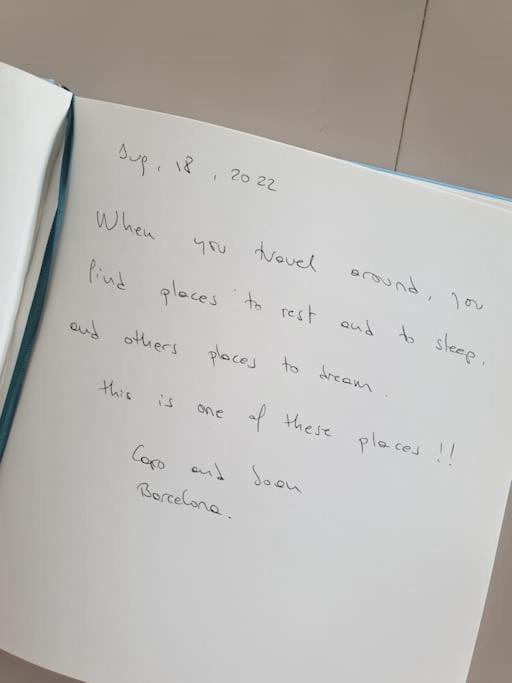 Aug, 18, 2022
When you travel around, you
find places to rest and to sleep,
and others places to dream.
this is one of these places!!
Caro and Joan
Barcelona.